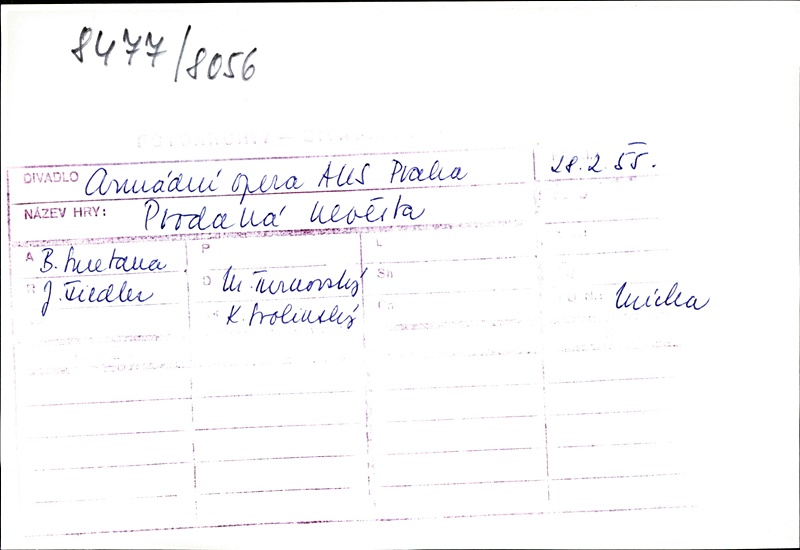 8477/8056
DIVADLO Armádní opera AUS Praha 28.2.55.
NÁZEV HRY: Prodaná nevěsta
A B. Smetana P L
R J. Fiedler D M. Turnovský Sh
K. Svolinský